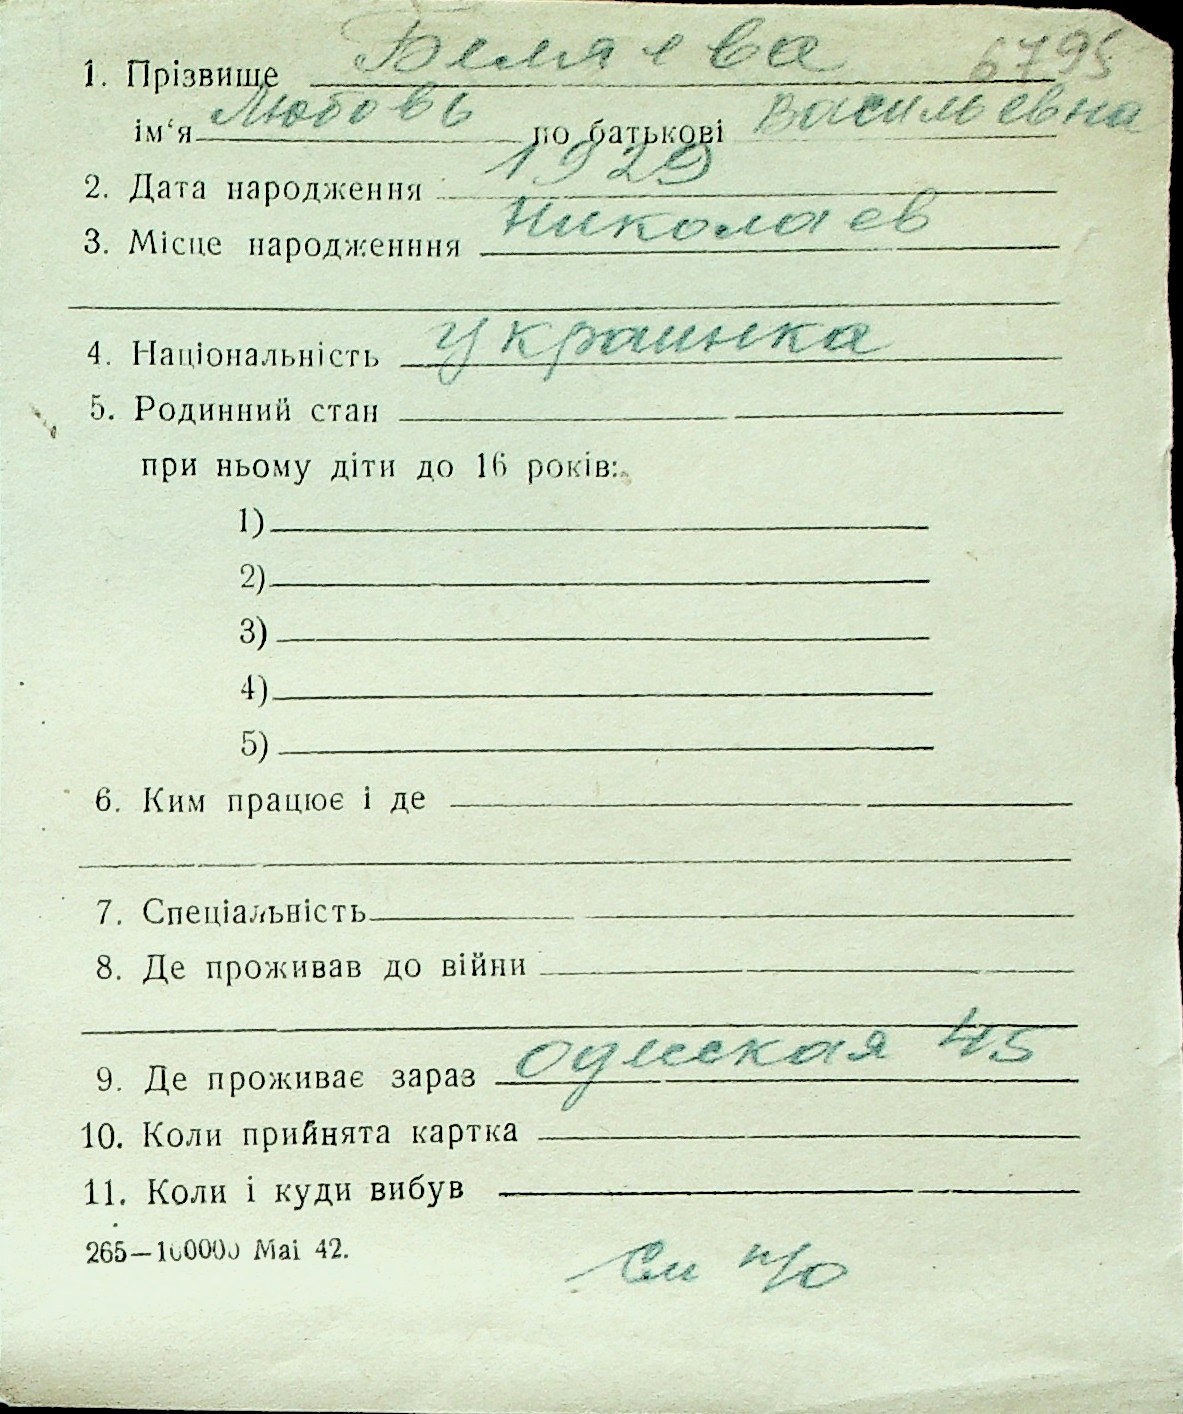 6795
1. Прізвище Беляева
ім‘я Любовь по батькові Васильевна
2. Дата народження 1929
3. Місце народженння Николаев
4. Національність Украинка
5. Родинний стан
при ньому діти до 16 років:
1)
2)
3)
4)
5)
6. Ким працює і де
7. Спеціальність
8. Де проживав до війни
9. Де проживає зараз Одесская 45
10. Коли прийнята картка
11. Коли і куди вибув
265—100000 Mai 42.
См н/о